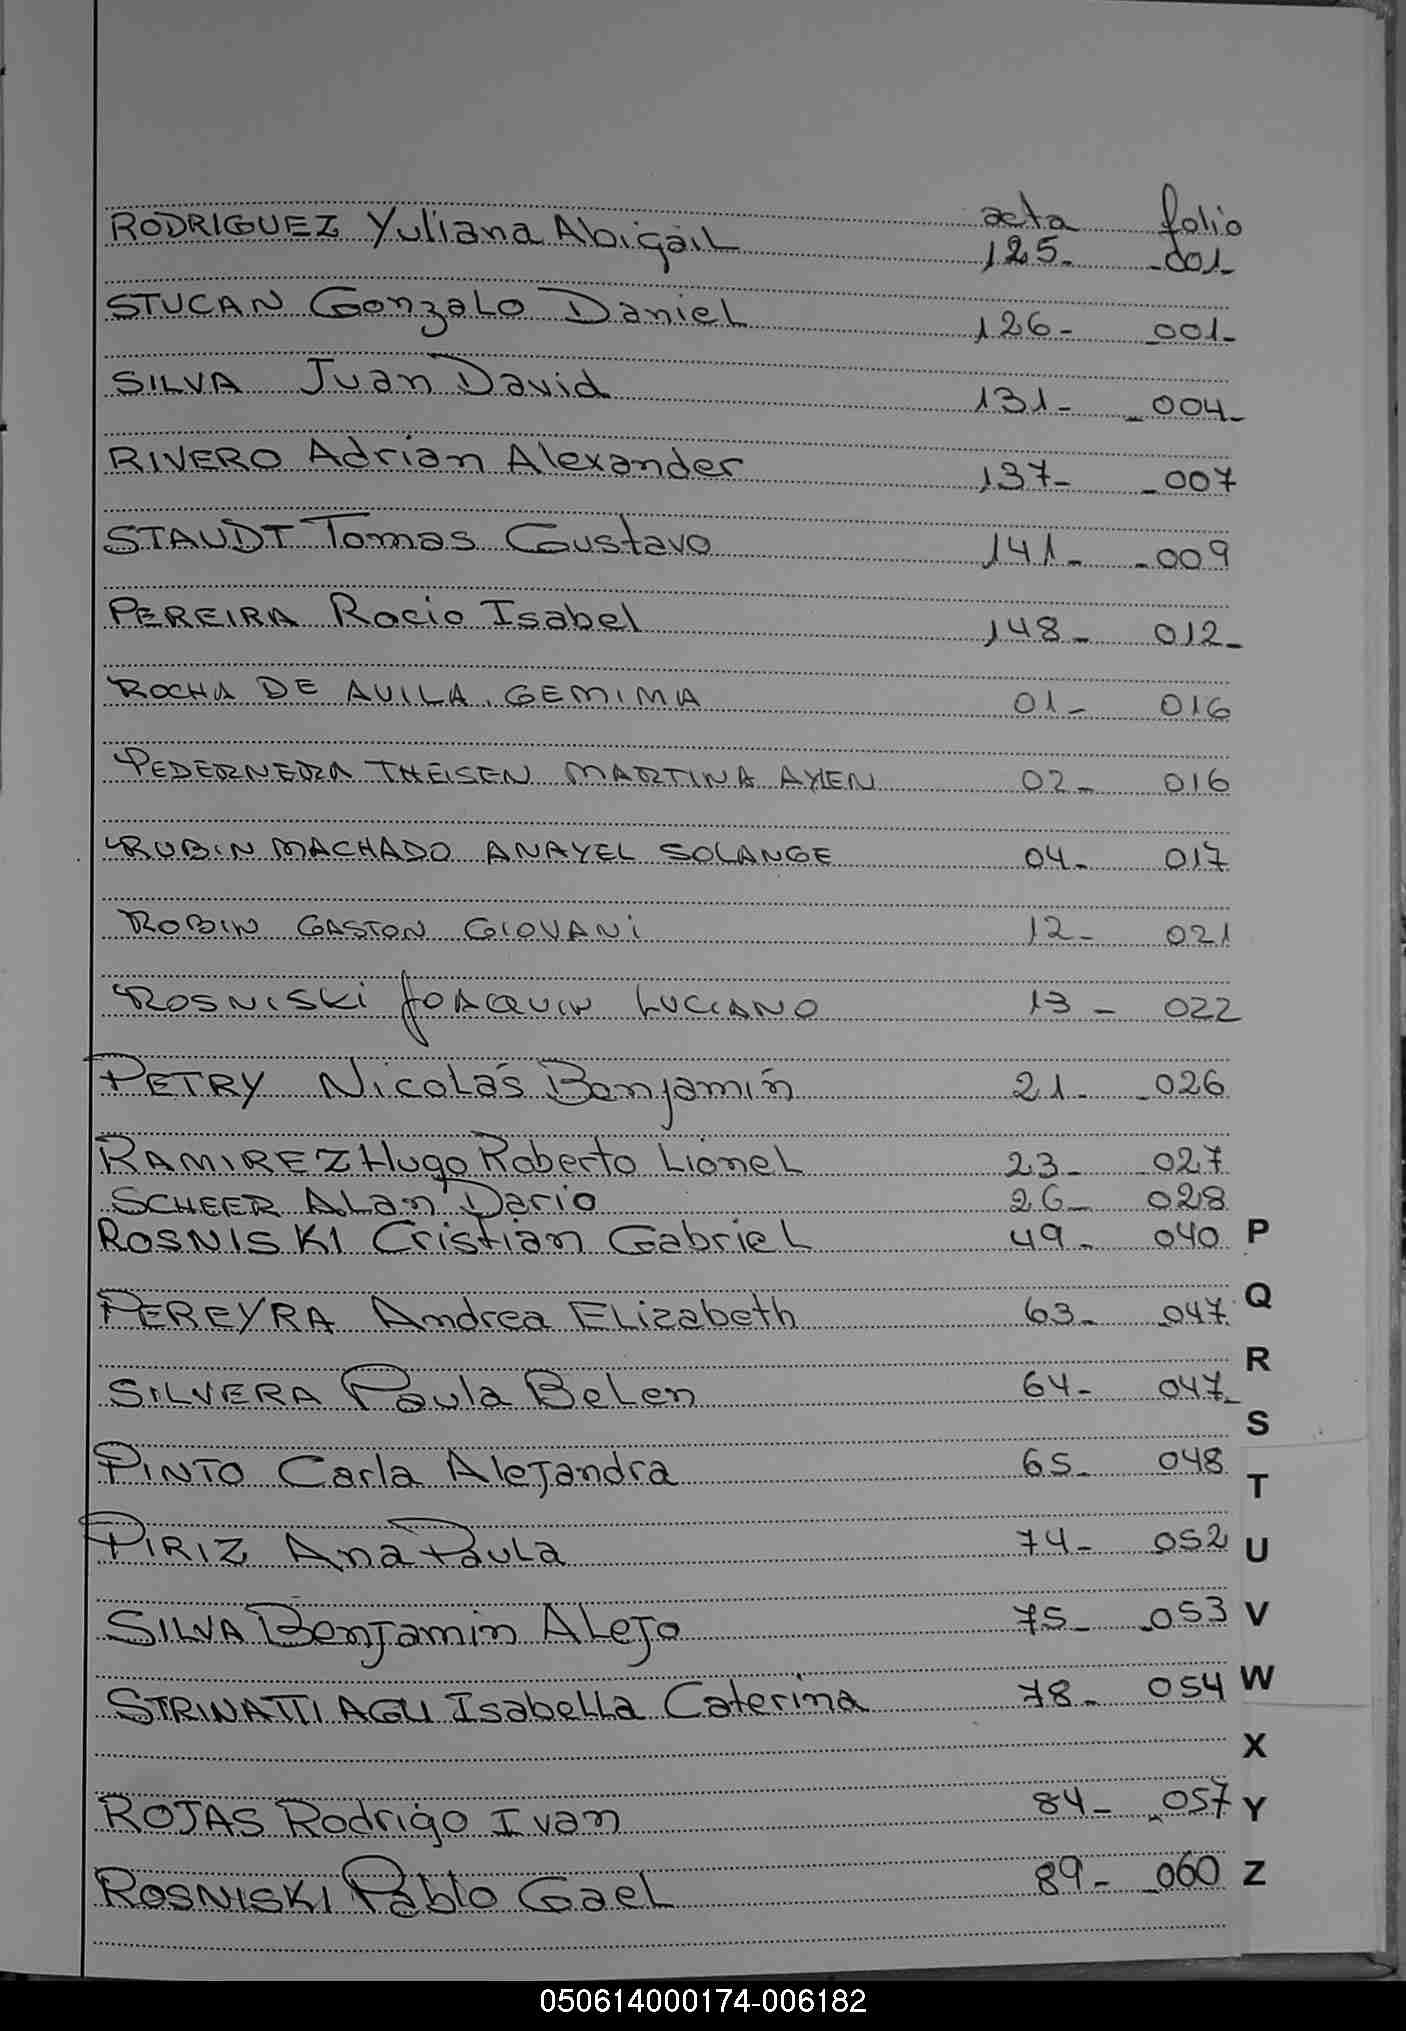 acta folio
RODRIGUEZ Yuliana Abigail 125- -001-
STUCAN Gonzalo Daniel 126- -001-
SILVA Juan David 131- -004-
RIVERO Adrian Alexander 137- -007
STAUDT Tomas Gustavo 141- -009
PEREIRA Rocio Isabel 148- 012-
ROCHA DE AVILA, GEMIMA 01- 016
PEDERNERA THEISEN MARTINA AYLEN 02- 016
RUBIN MACHADO ANAYEL SOLANGE 04- 017
ROBIN GASTON GIOVANI 12- 021
ROSNISKI JOAQUIN LUCIANO 13- 022
PETRY Nicolás Benjamín 21- -026
RAMIREZ Hugo Roberto Lionel 23- -027
SCHEER Alan Dario 26- 028
ROSNISKI Cristian Gabriel 49- 040 P
PEREYRA Andrea Elizabeth 63- -047 Q
R
SILVERA Paula Belen 64- 047-
S
PINTO Carla Alejandra 65- 048
T
PIRIZ Ana Paula 74- 052 U
SILVA Benjamin Alejo 75- -053 V
STRINATTI AGU Isabella Caterina 78- 054 W
X
ROJAS Rodrigo Ivan 84- -057 Y
ROSNISKI Pablo Gael 89- -060 Z
050614000174-006182